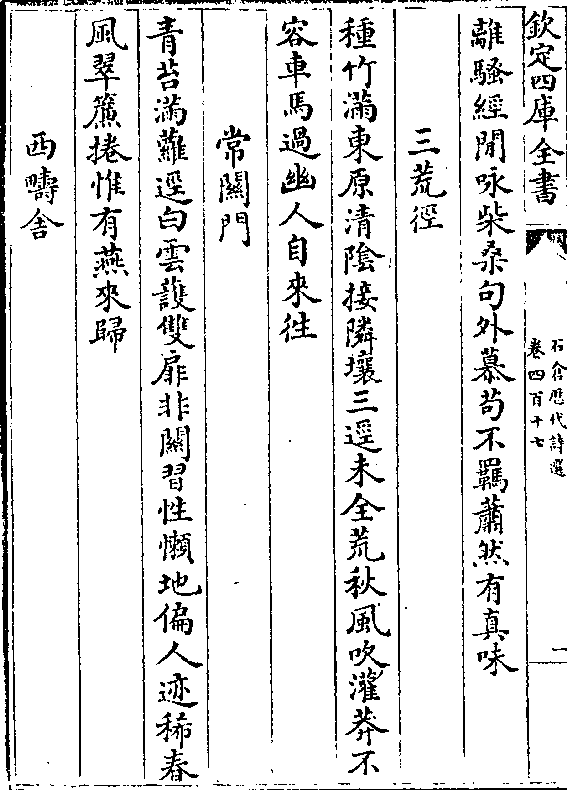 欽定四庫全書
石倉歷代詩選
卷四百十七
一
離騷經閒咏柴桑句外慕苟不羈蕭然有真味
三荒徑
種竹滿東原清陰接隣壤三逕未全荒秋風吹灌莽不
容車馬過幽人自來徃
常關門
青苔滿蘿逕白雲護雙扉非關習性懶地偏人迹稀春
風翠簾捲惟有燕來歸
西疇舍